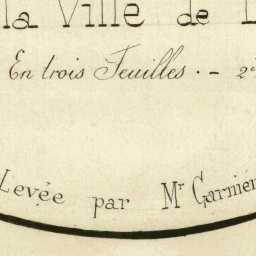 la Ville de
En trois Feuilles. - 2
Levée par Mr Garnier